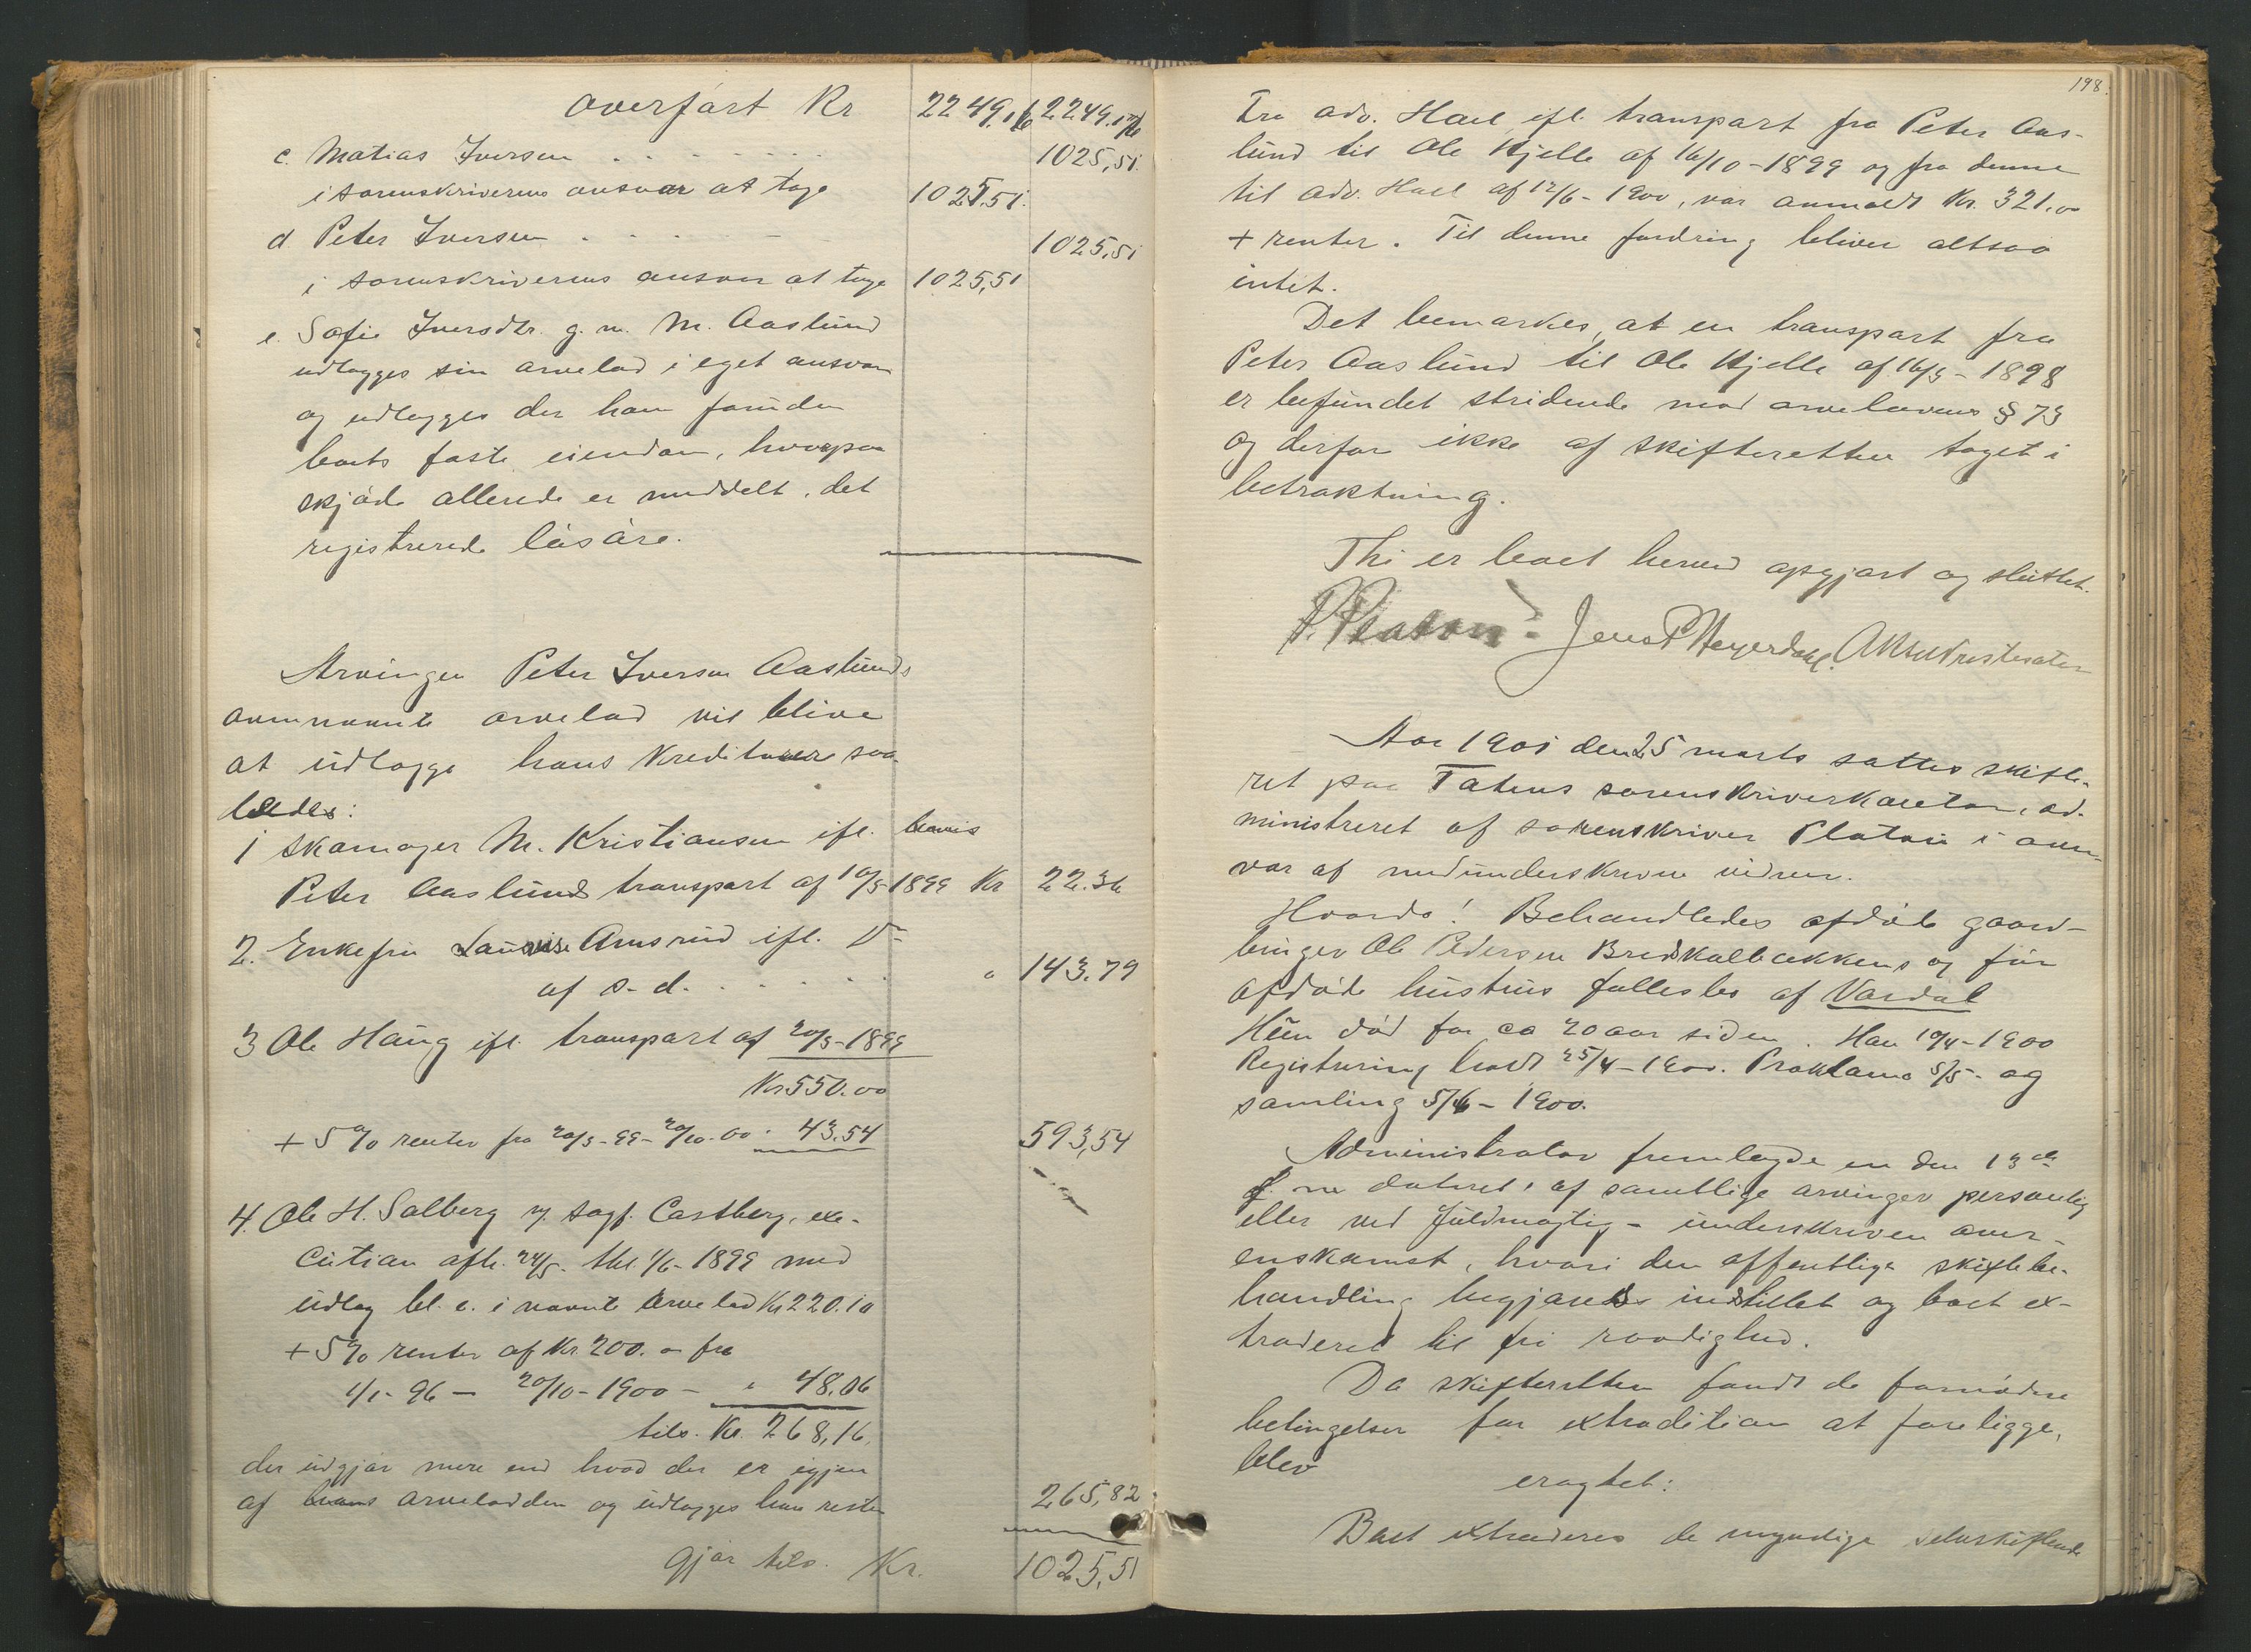 overført Kr 2249.16 2249.16
c. Matias Iversen . . . . . . . . 1025,51.
i sorenskriverens ansvar at tage 1025.51.
d Peter Iversen . . . . . 1025,51
i sorenskriverens ansvar at tage 1025,51
e. Sofie Iversdtr. g. m. M. Aaslund
udlægges sin arvelod i eget ansvar
og udlægges der ham foruden
boets faste eiendom, hvorpaa
skjøde allerede er meddelt, det
registrerede løsøre.
Arvingen Peter Iversen Aaslunds
ovennævnte arvelod vil blive
at udlægge hans kreditorer saa-
ledes:
1 skomager M. Kristiansen ifl. bevis
Peter Aaslunds transport af 10/5-1899 Kr 22.36
2. Enkefru Amsrud ifl. Do
af s. d. . . . . . " 143.79
3 Ole Haug ifl. transport af 20/3-1899
Kr 550.00
+ 5 % renter fra 20/3-99-20/10.00 " 43.54 593,54
4. Ole H. Solberg v. sagf. Castberg, exe-
cution afh. 24/5. thl. 1/6-1899 med
udlæg bl. a. i nævnte arvelod Kr 220.10
+ 5 % renter af Kr. 200.00 fra
1/1-96 - 20/10-1900 - " 48.06
tils. Kr. 268,16.
der udgjør mere end hvad der er igjen
af hans arvelodden og udlægges han resten 265,82
Gjør tils. Kr. 1025,51
198.
Fra adv. Hoel ifl. transport fra Peter Aas-
lund til Ole Kjelle af 16/10-1899 og fra denne
til adv. Hoel af 12/6-1900, var anmeldt Kr. 321.00
+ renter. Til denne fordring bliver altsaa
intet.
Det bemærkes, at en transport fra
Peter Aaslund til Ole Kjelle af 16/3-1898
er befundet stridende mod arvelovens § 73
og derfor ikke af skifteretten taget i
betraktning.
Thi er boet herved opgjort og sluttet.
P. Platou. Jens P Heyerdahl.
Aar 1901 den 25 marts sattes skifte-
ret paa Totens sorenskriverkontor, ad-
ministreret af sorenskriver Platou i over-
vær af medunderskrevne vidner.
Hvorda! Behandledes afdøde gaard-
bruger Ole Pedersen Bredskallbækkens og før
afdøde hustrus fællesbo af Vardal
Hun død for ca 20 aar siden. Han 10/4-1900
Registrering holdt 25/4-1900. Proklama 5/5. og
samling 5/6-1900.
Administrator fremlagde en den 13de
ds. mn dateret, af samtlige arvinger personlig
eller ved fuldmægtig - underskreven over-
enskomst, hvori den offentlige skiftebe-
handling begjæredes indstillet og boet ex-
traderet til fri raadighed.
Da skifteretten fandt de fornødne
betingelser for extradition at foreligge,
blev
eragtet:
Boet extraderes de myndige selvskiftende